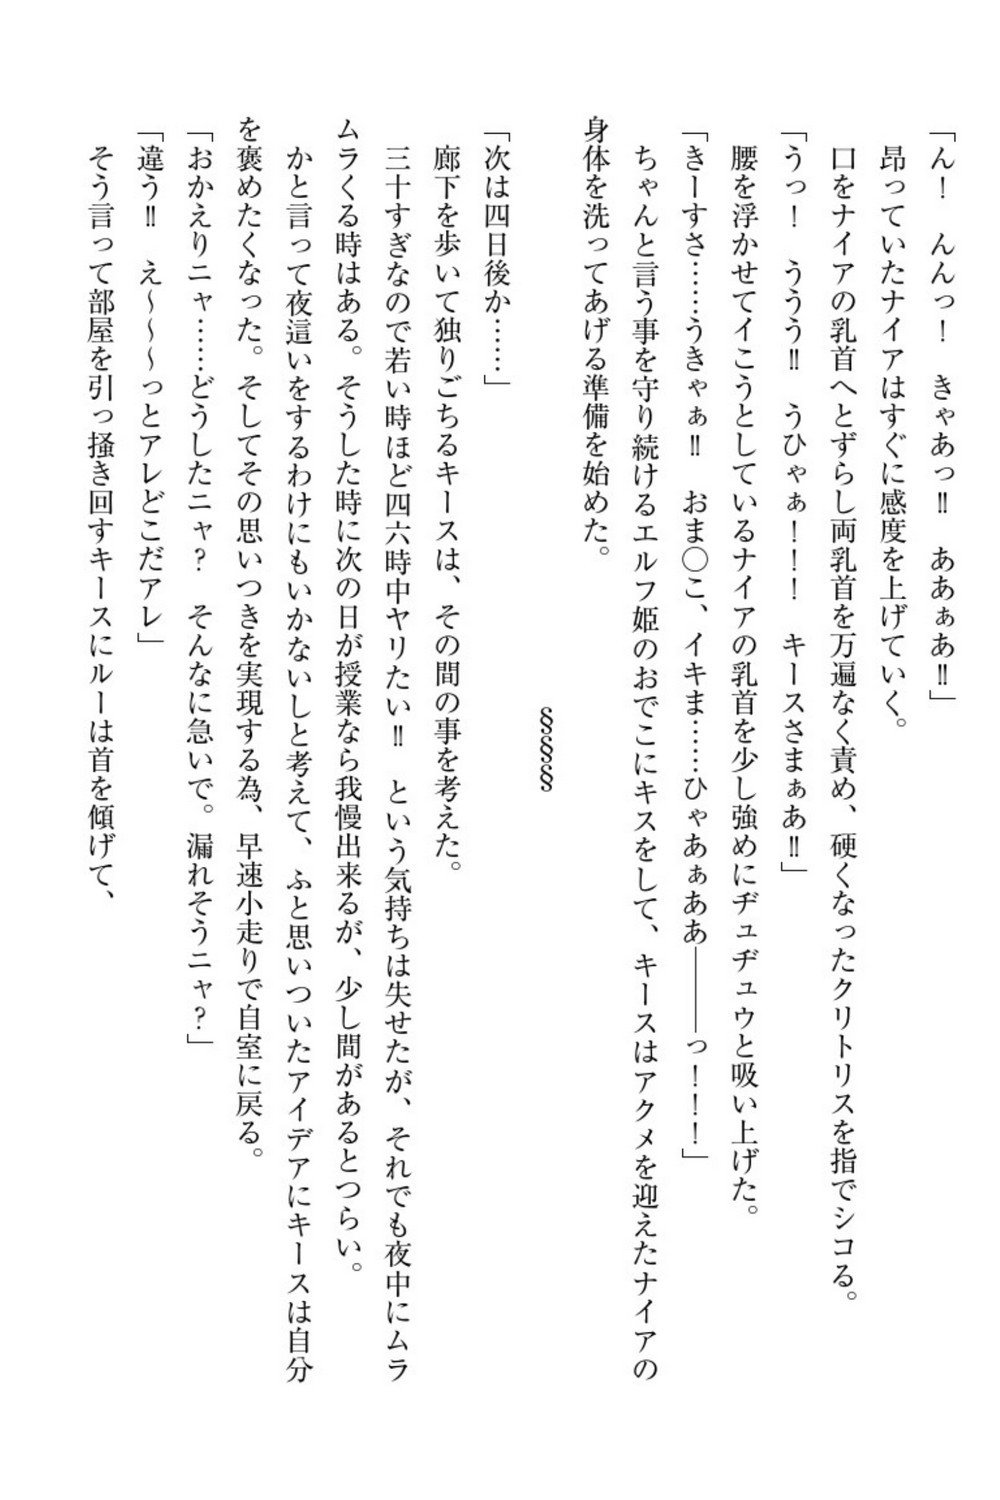 「ん！　んんっ！　きゃあっ‼　ああぁあ‼」
昂っていたナイアはすぐに感度を上げていく。
口をナイアの乳首へとずらし両乳首を万遍なく責め、硬くなったクリトリスを指でシコる。
「うっ！　ううう‼　うひゃぁ！！！　キースさまぁあ‼」
腰を浮かせてイこうとしているナイアの乳首を少し強めにヂュヂュウと吸い上げた。
「きーすさ……うきゃぁ‼　おま〇こ、イキま……ひゃあぁああ――――っ！！！」
ちゃんと言う事を守り続けるエルフ姫のおでこにキスをして、キースはアクメを迎えたナイアの
身体を洗ってあげる準備を始めた。
§§§§
「次は四日後か……」
廊下を歩いて独りごちるキースは、その間の事を考えた。
三十すぎなので若い時ほど四六時中ヤりたい‼　という気持ちは失せたが、それでも夜中にムラ
ムラくる時はある。そうした時に次の日が授業なら我慢出来るが、少し間があるとつらい。
かと言って夜這いをするわけにもいかないしと考えて、ふと思いついたアイデアにキースは自分
を褒めたくなった。そしてその思いつきを実現する為、早速小走りで自室に戻る。
「おかえりニャ……どうしたニャ？　そんなに急いで。漏れそうニャ？」
「違う‼　え～～～っとアレどこだアレ」
そう言って部屋を引っ掻き回すキースにルーは首を傾げて、